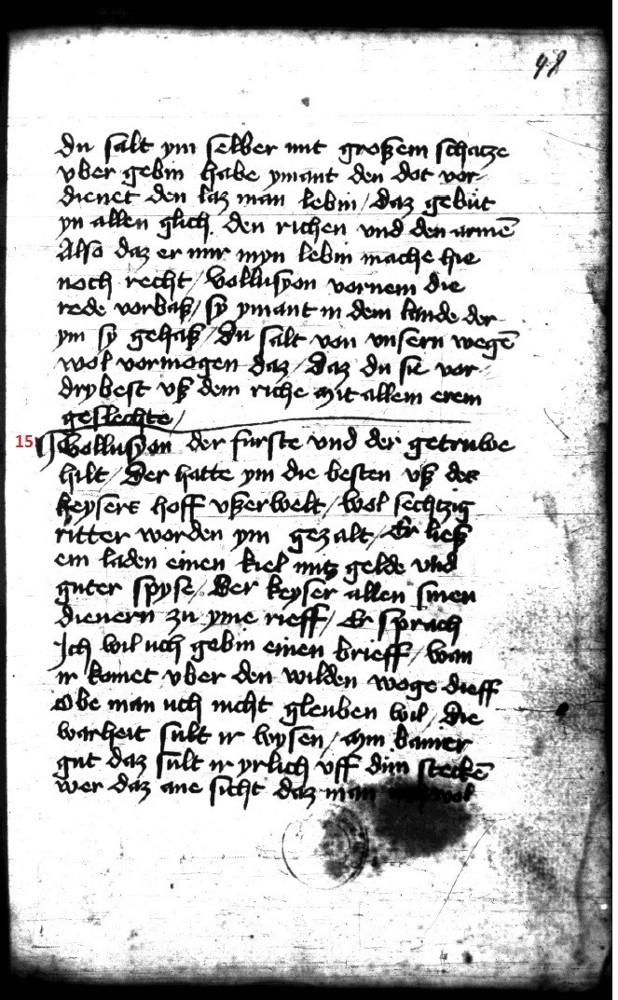 48
du salt ym selber mit großem schatze
vber gebin habe ymant den dot vor-
dienet den laz man lebin / daz gebut
yn allen glich. den richen vnd den armē
Also daz er mir myn lebin mache hie
noch recht / Vollusyon vornem die
rede vorbaß / sy ymant in dem lande der
ym sy gehaß / Du salt von vnsern wegē
wol vormogen daz / Daz du sie vor-
drybest vß dem riche mit allem erem
geslechte /
15 Vollusyon der furste vnd der getruwe
hilt / Der hatte ym die besten vß des
keysers hoff vßerwelt / wol sechtzig
ritter worden ym gezalt / Er ließ
em laden einen kiel mit gelde vnd
guter spyse / Der keyser allen sinen
dienern zu yme rieff / Er sprach
Ich wil uch gebin einen brieff / wan
ir komet vber den wilden woge dieff
Obe man uch nicht gleuben wil / die
warheit sult ir wysen / mym banier
gut daz sult ir yrlich vff din steckē
wer daz ane sicht daz man wol